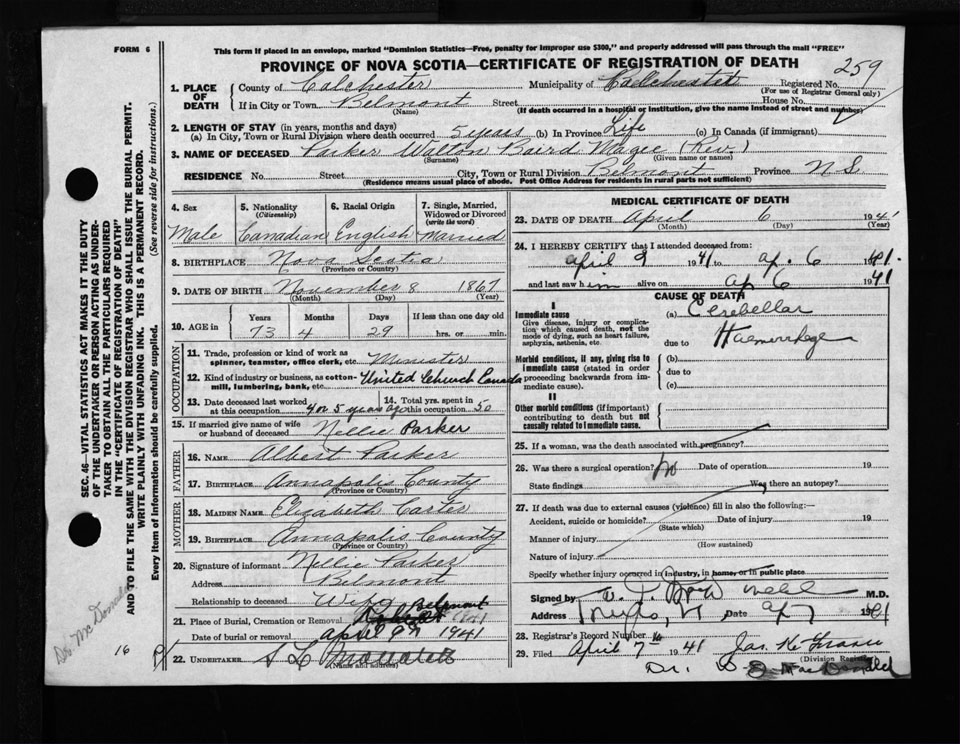 FORM 6
This form if placed in an envelope, marked "Dominion Statistics—Free, penalty for improper use $300," and properly addressed will pass through the mail "FREE"
PROVINCE OF NOVA SCOTIA—CERTIFICATE OF REGISTRATION OF DEATH
259
1. PLACE OF DEATH
County of Colchester Municipality of Colchester Registered No.
(For use of Registrar General only)
If in City or Town Belmont Street House No.
(Name) (If death occurred in a hospital or institution, give the name instead of street and number)
2. LENGTH OF STAY (in years, months and days)
(a) In City, Town or Rural Division where death occurred 5 years (b) In Province Life (c) In Canada (if immigrant)
3. NAME OF DECEASED Parker Walton Baird Magee (Rev.)
(Surname) (Given name or names)
RESIDENCE No. Street City, Town or Rural Division Belmont Province N S
(Residence means usual place of abode. Post Office Address for residents in rural parts not sufficient)
4. Sex
Male
5. Nationality (Citizenship)
Canadian
6. Racial Origin
English
7. Single, Married, Widowed or Divorced (write the word)
Married
8. BIRTHPLACE Nova Scotia
(Province or Country)
9. DATE OF BIRTH November 8 1867
(Month) (Day) (Year)
10. AGE in Years Months Days If less than one day old
73 4 29 hrs. or min.
OCCUPATION
11. Trade, profession or kind of work as spinner, teamster, office clerk, etc. Minister
12. Kind of industry or business, as cotton-mill, lumbering, bank, etc. United Church Canada
13. Date deceased last worked at this occupation 4 or 5 years ago
14. Total yrs. spent in this occupation 50
15. If married give name of wife or husband of deceased Nellie Parker
FATHER
16. NAME Albert Parker
17. BIRTHPLACE Annapolis County
(Province or Country)
MOTHER
18. MAIDEN NAME Elizabeth Carter
19. BIRTHPLACE Annapolis County
(Province or Country)
20. Signature of informant Nellie Parker
Address Belmont
Relationship to deceased Wife
21. Place of Burial, Cremation or Removal Belmont
Date of burial or removal April 9th 1941
22. UNDERTAKER S L
(Name and address)
MEDICAL CERTIFICATE OF DEATH
23. DATE OF DEATH April 6 1941
(Month) (Day) (Year)
24. I HEREBY CERTIFY that I attended deceased from:
April 1941 to Ap. 6 1941.
and last saw him alive on Ap 6 1941
CAUSE OF DEATH
I
Immediate cause
Give disease, injury or complication which caused death, not the mode of dying, such as heart failure, asphyxia, asthenia, etc.
(a) Cerebellar
due to Haemorrhage
Morbid conditions, if any, giving rise to immediate cause (stated in order proceeding backwards from immediate cause).
(b)
due to
(c)
II
Other morbid conditions (if important) contributing to death but not causally related to immediate cause.
25. If a woman, was the death associated with pregnancy?
26. Was there a surgical operation? No Date of operation 19
State findings Was there an autopsy?
27. If death was due to external causes (violence) fill in also the following:—
Accident, suicide or homicide? Date of injury 19
(State which)
Manner of injury
(How sustained)
Nature of injury
Specify whether injury occurred in industry, in home, or in public place
Signed by M.D.
Address Date Ap 7 1941
28. Registrar's Record Number 16
29. Filed April 7- 1941
(Division Registrar)
Dr. D MacDonald
SEC. 46—VITAL STATISTICS ACT MAKES IT THE DUTY
OF THE UNDERTAKER OR PERSON ACTING AS UNDER-
TAKER TO OBTAIN ALL THE PARTICULARS REQUIRED
IN THE "CERTIFICATE OF REGISTRATION OF DEATH"
AND TO FILE THE SAME WITH THE DIVISION REGISTRAR WHO SHALL ISSUE THE BURIAL PERMIT.
WRITE PLAINLY WITH UNFADING INK. THIS IS A PERMANENT RECORD.
Every item of information should be carefully supplied. (See reverse side for instructions.)
Dr. McDonald
16